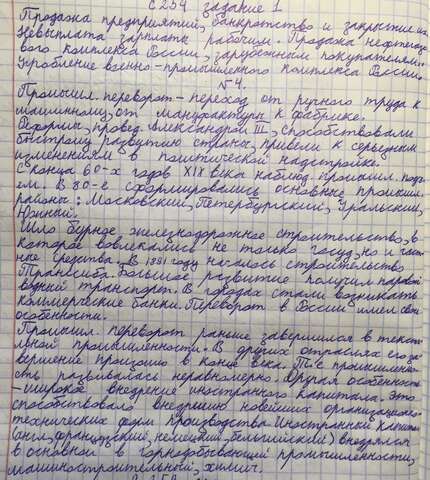 с 254 задание 1
Продажа предприятий, банкротство и закрытие их
Невыплата зарплаты рабочим. Продажа нефтегазо
вого комплекса России, зарубежным покупателям.
Дробление военно-промышленного комплекса России.
№4.
Промышл. переворот - переход от ручного труда к
машинному, от мануфактуры к фабрике.
Реформы, провед. Александром III, способствовали
быстрому развитию страны, привели к серьезным
изменениям в политической надстройке.
С конца 60-х годов XIX века наблюд. промышл. подъ
ем. В 80-е сформировались основные промышл.
районы: Московский, Петербургский, Уральский,
Южный.
Шло бурное железнодорожное строительство, в
которое вовлекались не только госуд, но и част
ные средства. В 1891 году началось строительство
Транссиба. Большое развитие получил паровой
водный транспорт. В городах стали возникать
коммерческие банки. Переворот в России имел свои
особенности.
Промышл. переворот раньше завершился в тексти
льной промышленности. В других отраслях его за
вершение произошло в конце века. Т.е промышленно
сть развивалась неравномерно. Другая особенность
- широкое внедрение иностранного капитала. Это
способствовало внедрению новейших организационо
технических форм производства. Иностранный капитал
(англ, французский, немецкий, бельгийский) внедрялся
в основном в горнодобывающей промышленности,
машиностроительный, химич.